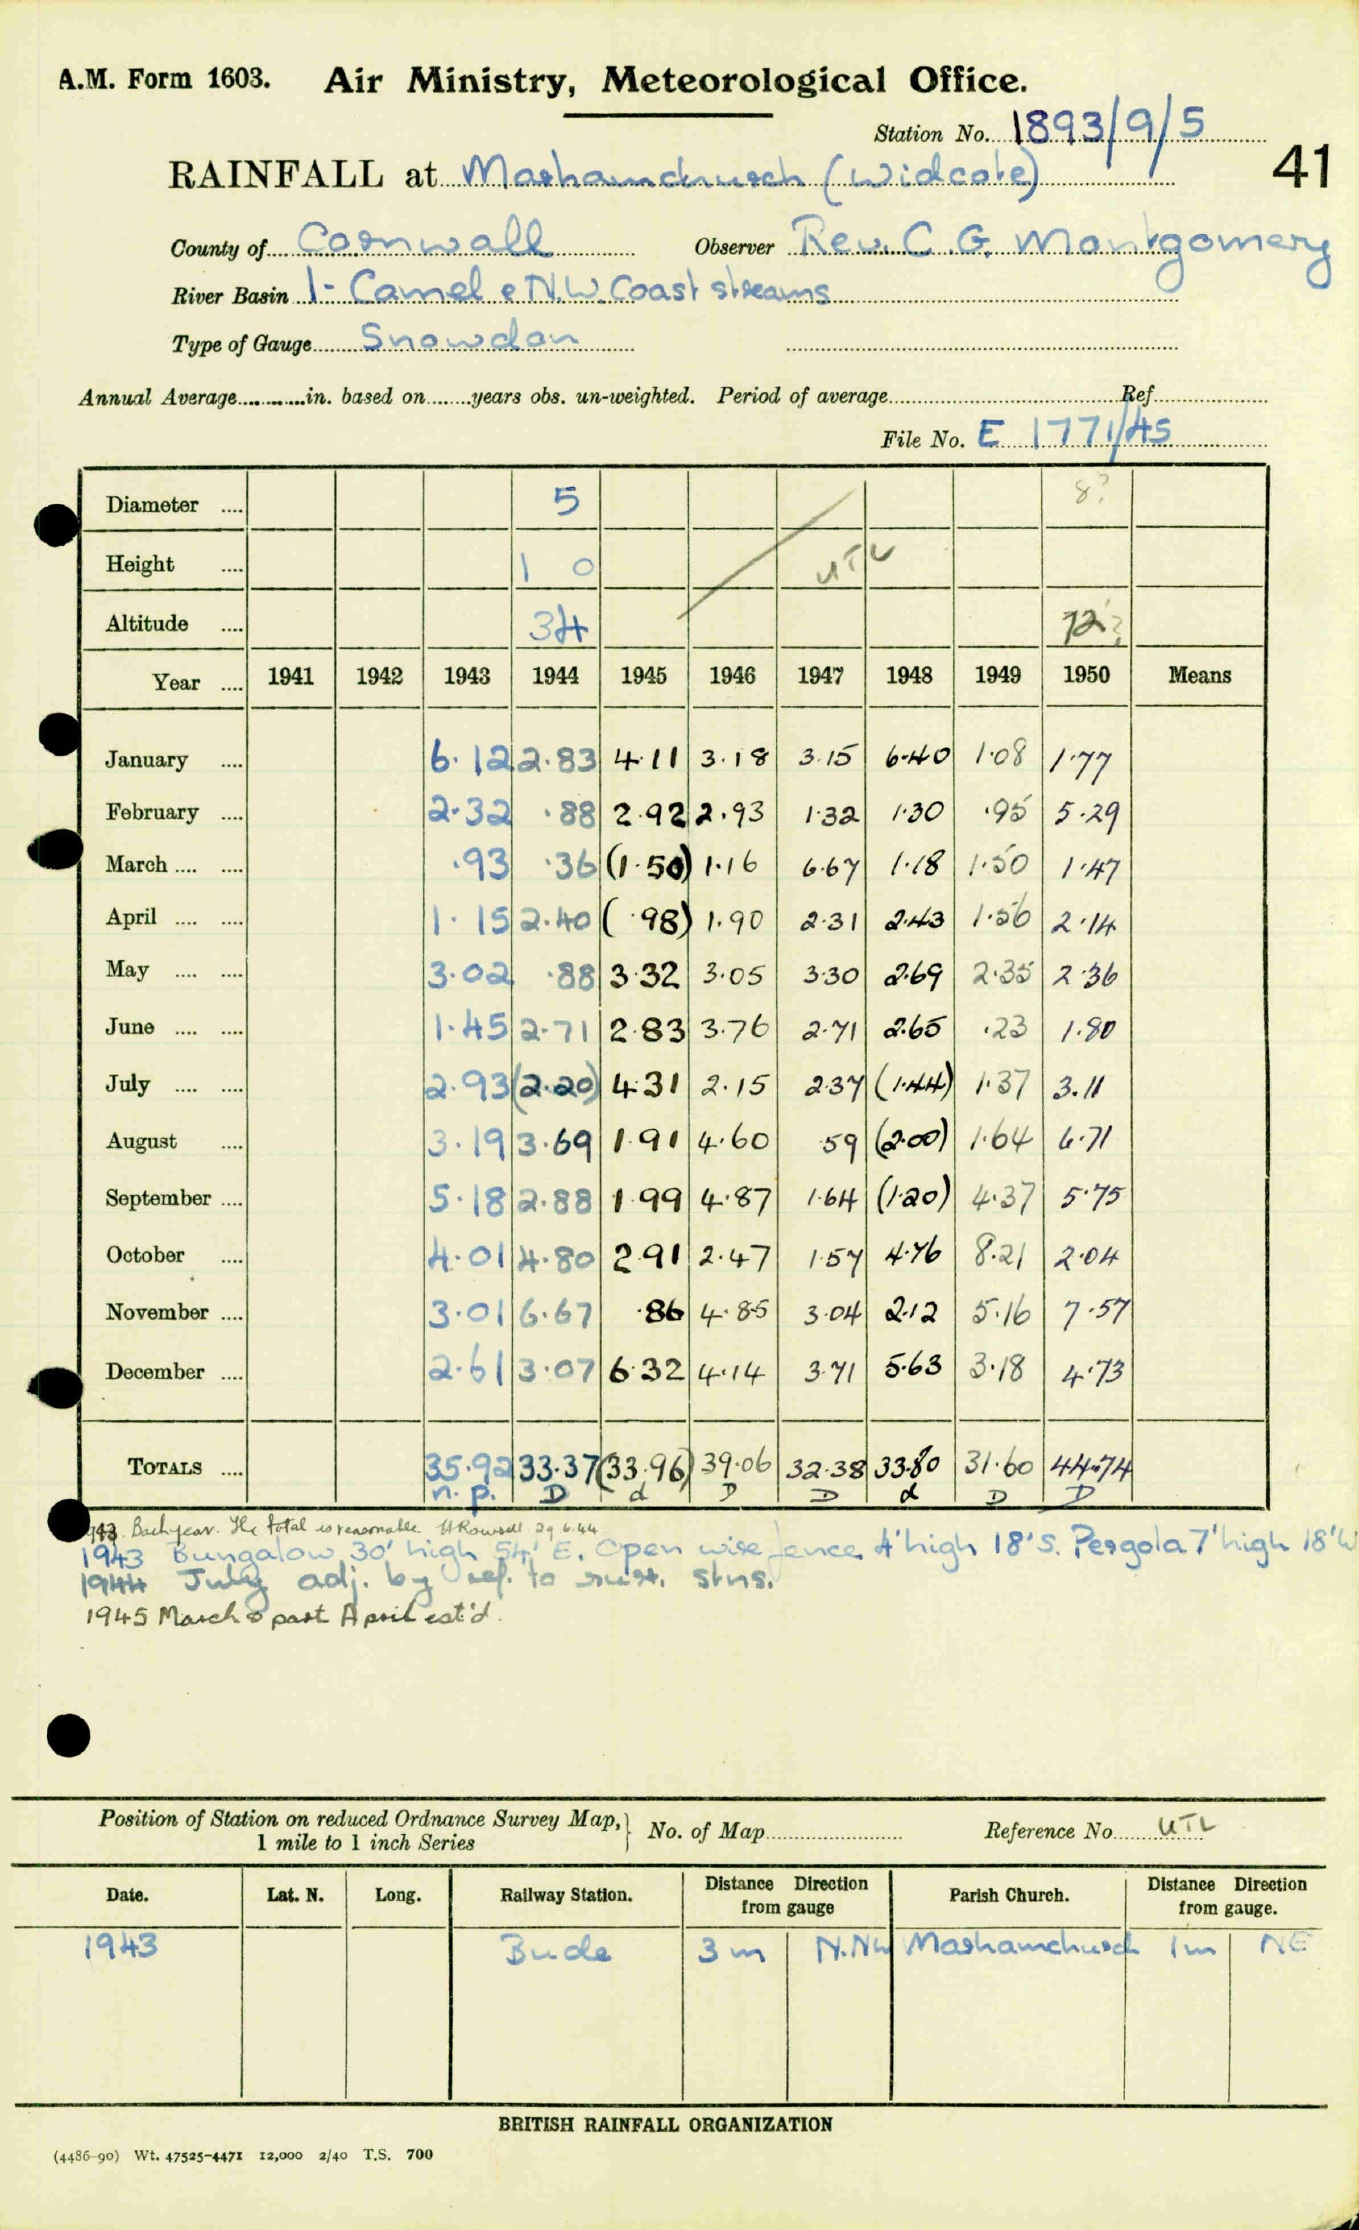 A.M. Form 1603. Air Ministry, Meteorological Office.
Station No. 1893/9/5
41
RAINFALL at Marhamchurch (Widcote)
County of Cornwall Observer Rev. C. G. Montgomery
River Basin 1- Camel & N.W. Coast streams
Type of Gauge Snowdon
Annual Average in. based on years obs. un-weighted. Period of average Ref
File No. E 1771/45
Diameter 5 8?
Height 1 0 UTL
Altitude 34 72?
Year 1941 1942 1943 1944 1945 1946 1947 1948 1949 1950 Means
January 6.12 2.83 4.11 3.18 3.15 6.40 1.08 1.77
February 2.32 .88 2.92 2.93 1.32 1.30 .95 5.29
March .93 .36 (1.50) 1.16 6.67 1.18 1.50 1.47
April 1.15 2.40 (.98) 1.90 2.31 2.43 1.56 2.14
May 3.02 .88 3.32 3.05 3.30 2.69 2.35 2.36
June 1.45 2.71 2.83 3.76 2.71 2.65 .23 1.80
July 2.93 (2.20) 4.31 2.15 2.37 (1.44) 1.37 3.11
August 3.19 3.69 1.91 4.60 .59 (2.00) 1.64 6.71
September 5.18 2.88 1.99 4.87 1.64 (1.20) 4.37 5.75
October 4.01 4.80 2.91 2.47 1.57 4.76 8.21 2.04
November 3.01 6.67 .86 4.85 3.04 2.12 5.16 7.57
December 2.61 3.07 6.32 4.14 3.71 5.63 3.18 4.73
TOTALS 35.92 33.37 (33.96) 39.06 32.38 33.80 31.60 44.74
n.p. D d D D d D D
1943. Back year. The total is reasonable 29.6.44
1943 Bungalow 30' high 54' E. Open wire fence 4' high 18' S. Pergola 7' high 18' W
1944 July adj. by ref. to surr. stns.
1945 March & part April est'd.
Position of Station on reduced Ordnance Survey Map, 1 mile to 1 inch Series No. of Map Reference No UTL
Date. Lat. N. Long. Railway Station. Distance Direction from gauge Parish Church. Distance Direction from gauge.
1943 Bude 3 m N.NW Marhamchurch 1m NE
BRITISH RAINFALL ORGANIZATION
(4486-90) Wt. 47525-4471 12,000 2/40 T.S. 700